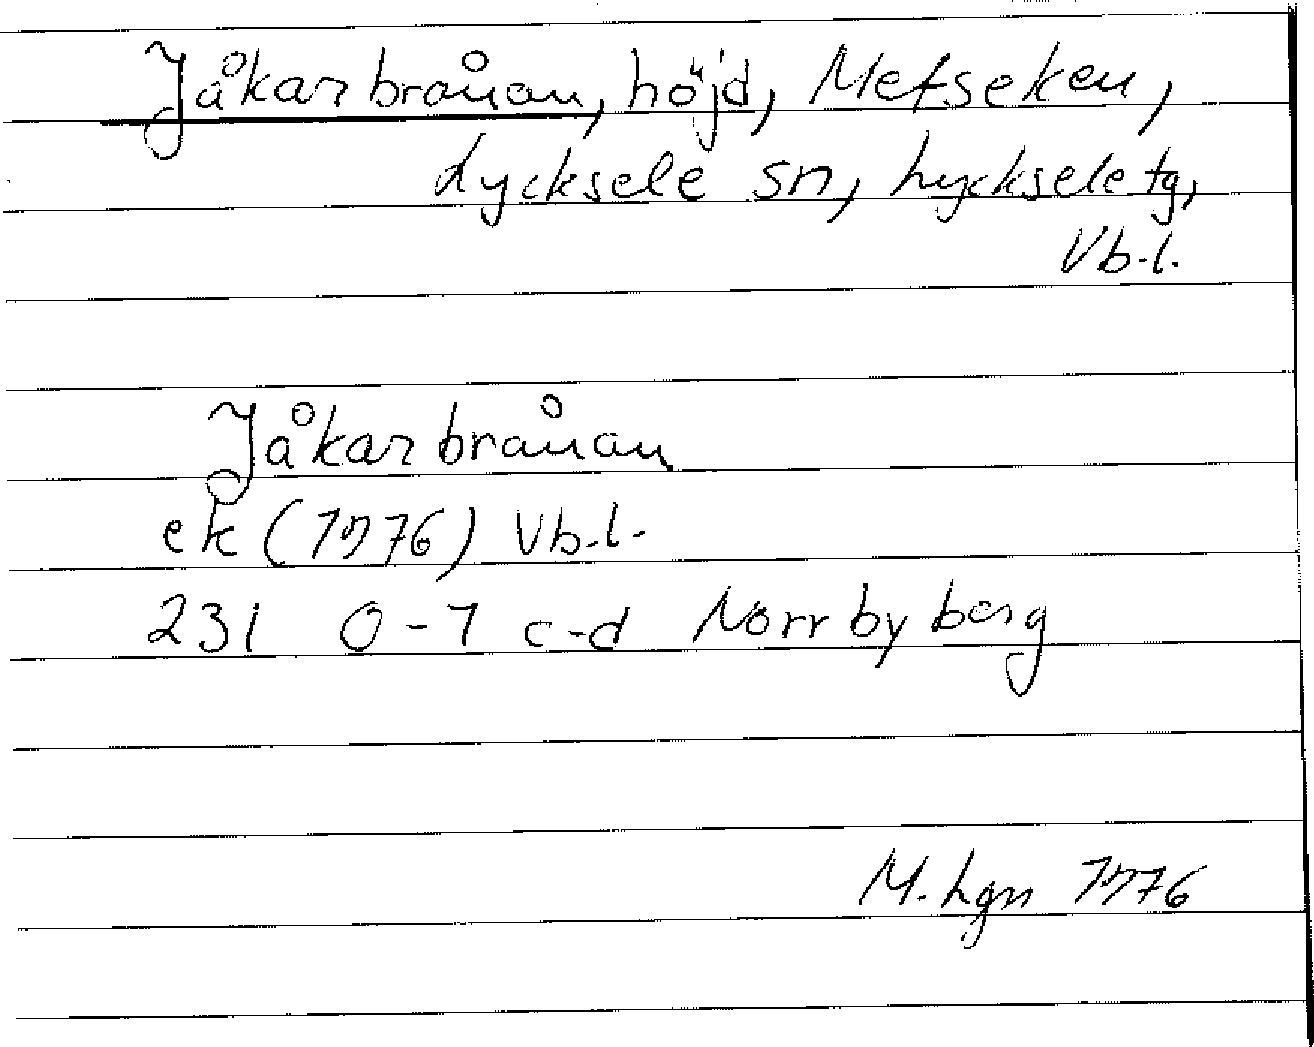 Jåkarbrånan, höjd, Metseken,
Lycksele sn, Lycksele tg,
Vb.l.
Jåkarbrånan
ek (1976) Vb.l.
231 0-1 c-d Norrbyberg
M. Lgn 1976